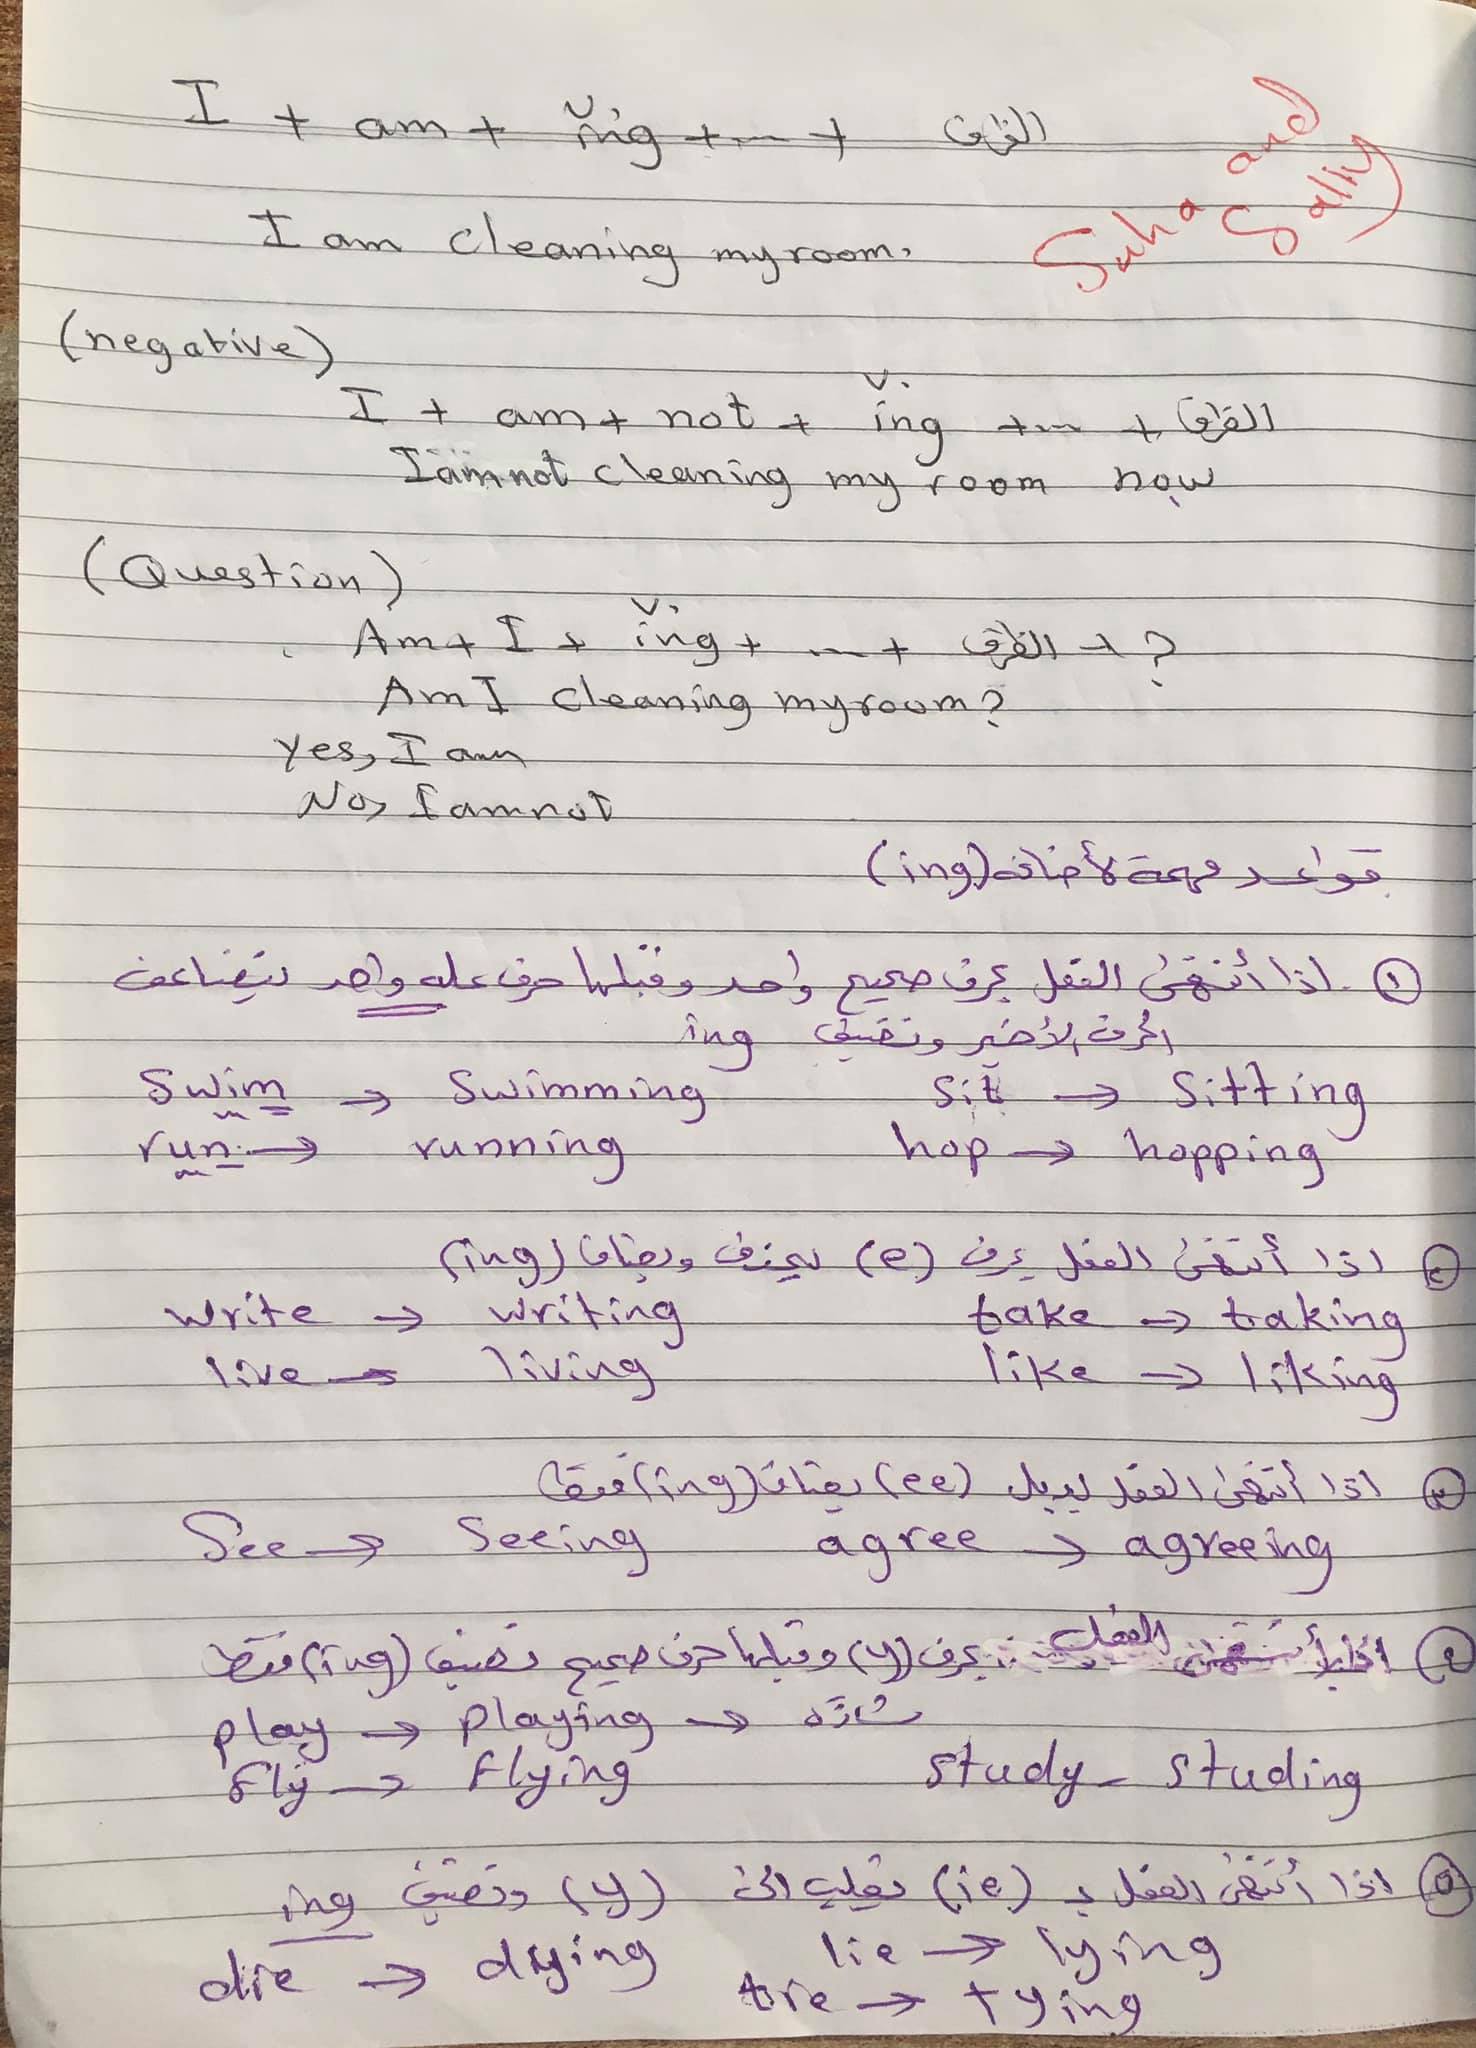 I + am + v. ing + ... + الظرف
Suha and Sally
I am cleaning my room.
(negative)
I + am + not + v. ing + ... + الظرف
I am not cleaning my room now
(Question)
Am + I + v. ing + ... + الظرف + ?
Am I cleaning my room?
Yes, I am
No, I am not
قواعد مهمة لأضافه (ing)
١ اذا أنتهى الفعل بحرف صحيح واحد وقبلها حرف عله واحد نضاعف
الحرف الأخير ونضيف ing
Swim → Swimming sit → sitting
run → running hop → hopping
٢ اذا أنتهى الفعل بحرف (e) يحذف ويضاف (ing)
write → writing take → taking
live → living like → liking
٣ اذا أنتهى الفعل بـ (ee) يضاف (ing) فقط
See → Seeing agree → agreeing
٤ اذا أنتهى الفعل بحرف (y) وقبلها حرف صحيح نضيف (ing) فقط
play → playing → شاذه
Fly → Flying study - studing
٥ اذا أنتهى الفعل بـ (ie) نقلب الى (y) ونضيف ing
die → dying lie → lying
tie → tying